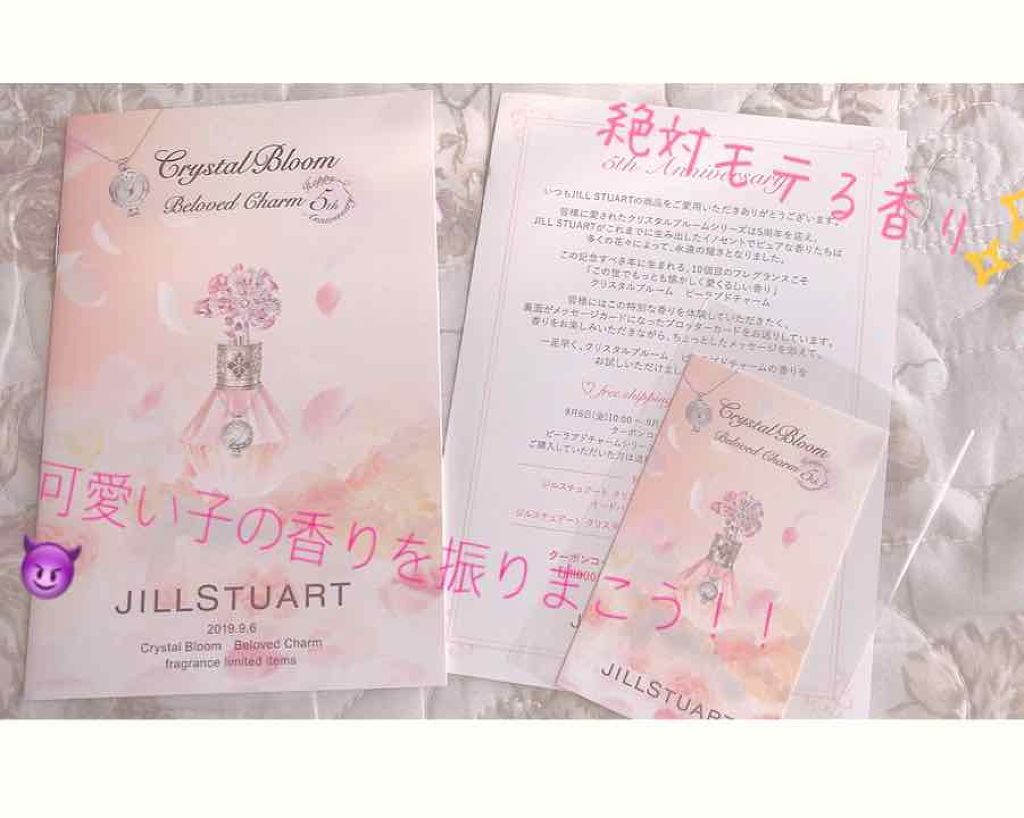 Crystal Bloom
Beloved Charm
Happy 5th Anniversary
可愛い子の香りを振りまこう！！
JILLSTUART
2019.9.6
Crystal Bloom Beloved Charm
fragrance limited items
絶対モテる香り
5th Anniversary
いつもJILL STUARTの商品をご愛用いただきありがとうございます。
皆様に愛されたクリスタルブルームシリーズは5周年を迎え、
JILL STUARTがこれまでに生み出したイノセントでピュアな香りたちは
多くの花々によって、永遠の輝きとなりました。
この記念すべき年に生まれる、10個目のフレグランスこそ
「この世でもっとも懐かしく愛くるしい香り」
クリスタルブルーム ビーラブドチャーム
皆様にはこの特別な香りを体験していただきたく、
裏面がメッセージカードになったブロッターカードをお送りしています。
香りをお楽しみいただきながら、ちょっとしたメッセージを添えて。
一足早く、クリスタルブルーム ビーラブドチャームの香りを
お試しいただけまし
free shipping
9月6日(金)10:00～9月
クーポンコ
ビーラブドチャームシリー
ご購入していただいた方は送
ジルスチュアート クリ
オードパ
ジルスチュアート クリスタ
クーポンコ
Crystal Bloom
Beloved Charm 5th
JILLSTUART